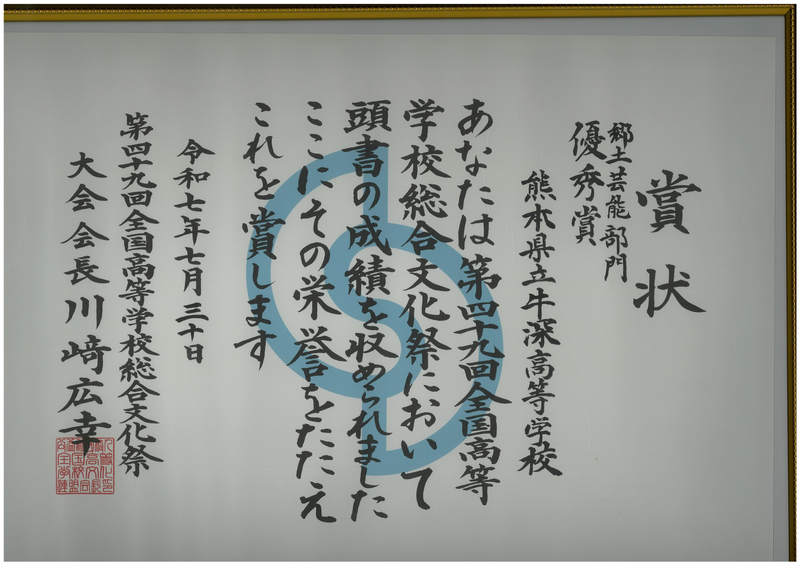 賞状
郷土芸能部門
優秀賞
熊本県立牛深高等学校
あなたは第四十九回全国高等
学校総合文化祭において
頭書の成績を収められました
ここにその栄誉をたたえ
これを賞します
令和七年七月三十日
第四十九回全国高等学校総合文化祭
大会会長川﨑広幸